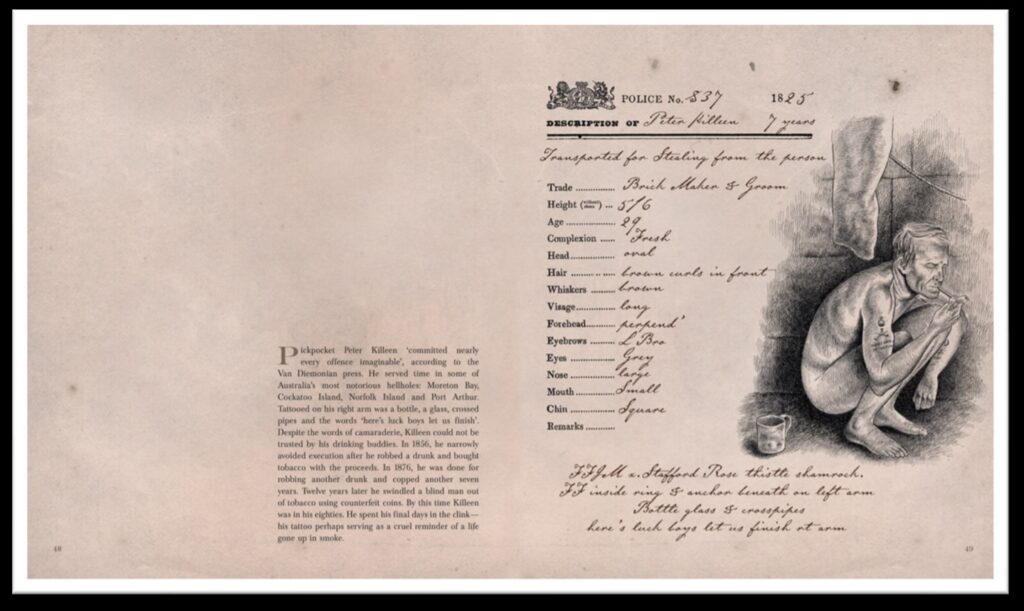 Pickpocket Peter Killeen ‘committed nearly
every offence imaginable’, according to the
Van Diemonian press. He served time in some of
Australia’s most notorious hellholes: Moreton Bay,
Cockatoo Island, Norfolk Island and Port Arthur.
Tattooed on his right arm was a bottle, a glass, crossed
pipes and the words ‘here’s luck boys let us finish’.
Despite the words of camaraderie, Killeen could not be
trusted by his drinking buddies. In 1856, he narrowly
avoided execution after he robbed a drunk and bought
tobacco with the proceeds. In 1876, he was done for
robbing another drunk and copped another seven
years. Twelve years later he swindled a blind man out
of tobacco using counterfeit coins. By this time Killeen
was in his eighties. He spent his final days in the clink—
his tattoo perhaps serving as a cruel reminder of a life
gone up in smoke.
48
POLICE No. 837 1825
DESCRIPTION OF Peter Killeen 7 years
Transported for Stealing from the person
Trade .............. Brick Maker & Groom
Height (without shoes) ... 5/6
Age .................... 29
Complexion ...... Fresh
Head.................. oval
Hair .................. brown curls in front
Whiskers ......... brown
Visage............... long
Forehead........... perpend'
Eyebrows ......... L Bro
Eyes .................. Grey
Nose .................. large
Mouth ............... Small
Chin .................. Square
Remarks ............
FFJM x. Stafford Rose thistle shamrock.
FF inside ring & anchor beneath on left arm
Bottle glass & crosspipes
here's luck boys let us finish rt arm
49